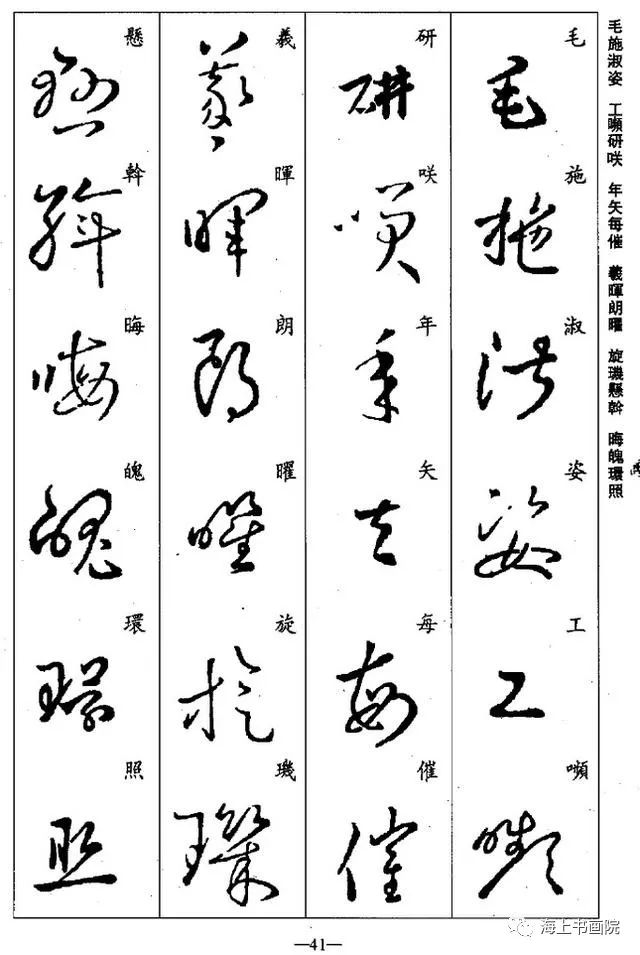 毛施淑姿 工嚬研咲 年矢每催 羲暉朗曜 旋璣懸斡 晦魄環照
毛 施 淑 姿 工 嚬
研 咲 年 矢 每 催
羲 暉 朗 曜 旋 璣
懸 斡 晦 魄 環 照
—41—
海上书画院